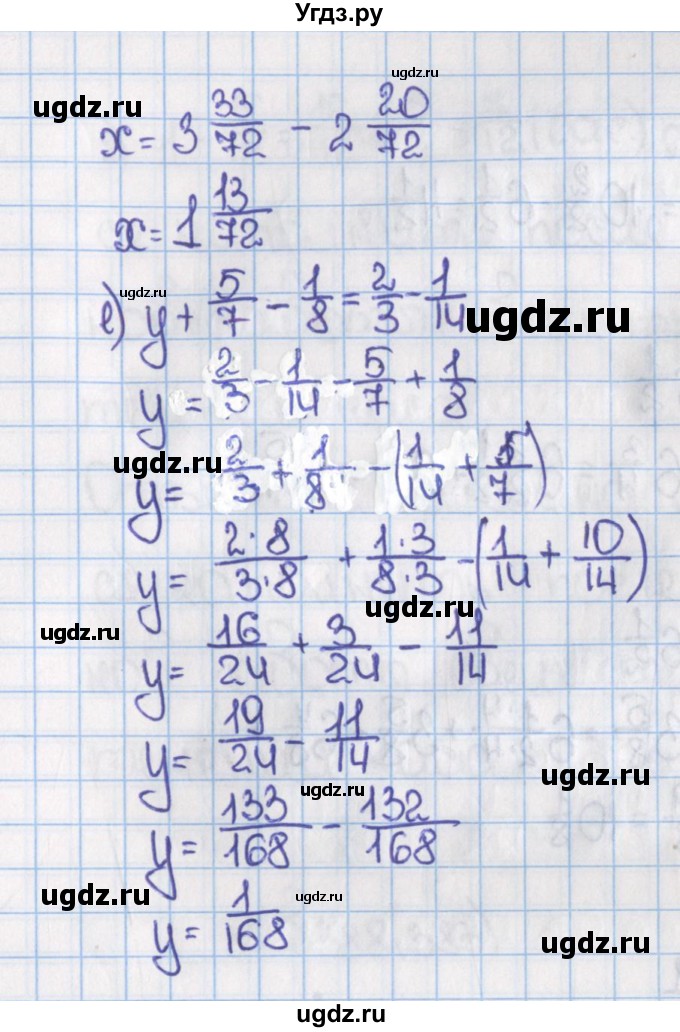 Угдз.ру
ugdz.ru
ugdz.ru
x = 3 33/72 - 2 20/72
x = 1 13/72
ugdz.ru
е) y + 5/7 - 1/8 = 2/3 - 1/14
ugdz.ru
y = 2/3 - 1/14 - 5/7 + 1/8
ugdz.ru
y = 2/3 + 1/8 - (1/14 + 5/7)
y = 2·8/3·8 + 1·3/8·3 - (1/14 + 10/14)
ugdz.ru
ugdz.ru
y = 16/24 + 3/24 - 11/14
y = 19/24 - 11/14
ugdz.ru
ugdz.ru
y = 133/168 - 132/168
ugdz.ru
ugdz.ru
y = 1/168
ugdz.ru
Угдз.ру